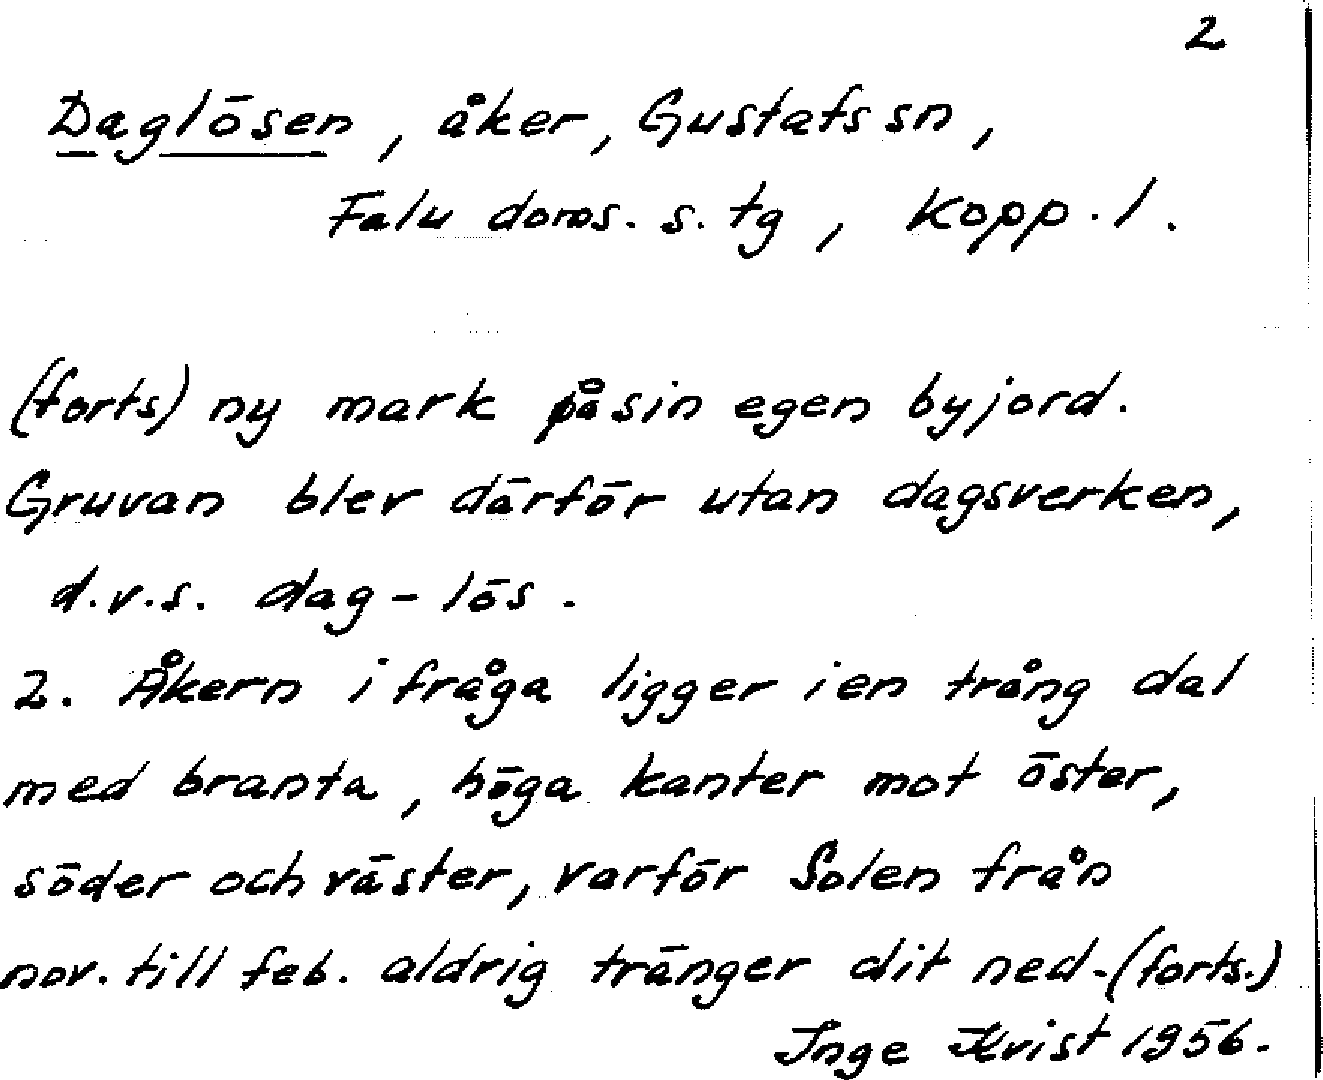 2
Daglösen, åker, Gustafs sn,
Falu doms. s. tg, Kopp. l.
(forts) ny mark på sin egen byjord.
Gruvan blev därför utan dagsverken,
d.v.s. dag-lös.
2. Åkern i fråga ligger i en trång dal
med branta, höga kanter mot öster,
söder och väster, varför Solen från
nov. till feb. aldrig tränger dit ned. (forts.)
Inge Kvist 1956.